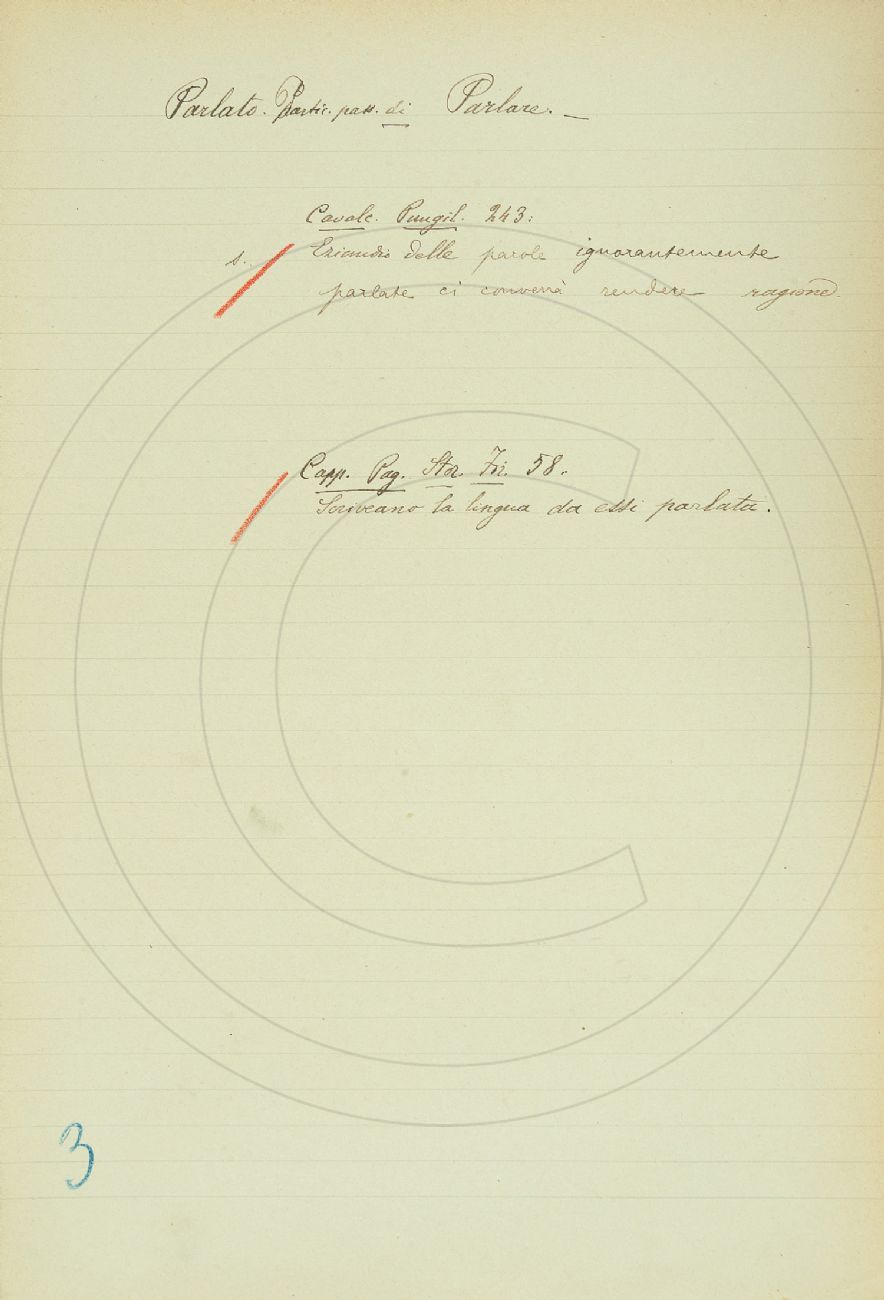 Parlato. Partic. pass. di Parlare. —
Cavalc. Pungil. 243:
s. Eziandio delle parole ignorantemente
parlate ci converrà rendere ragione.
Capp. Pag. Stor. Fir. 58.
Scriveano la lingua da essi parlata.
3